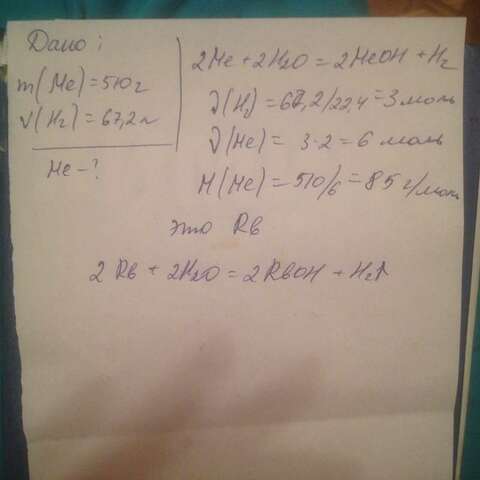 Дано:
m(Me)=510г
V(H₂)=67,2л
Me-?
2Me+2H₂O=2MeOH+H₂
ν(H₂)=67,2/22,4=3моль
ν(Me)=3·2=6 моль
M(Me)=510/6=85г/моль
Это Rb
2Rb+2H₂O=2RbOH+H₂↑